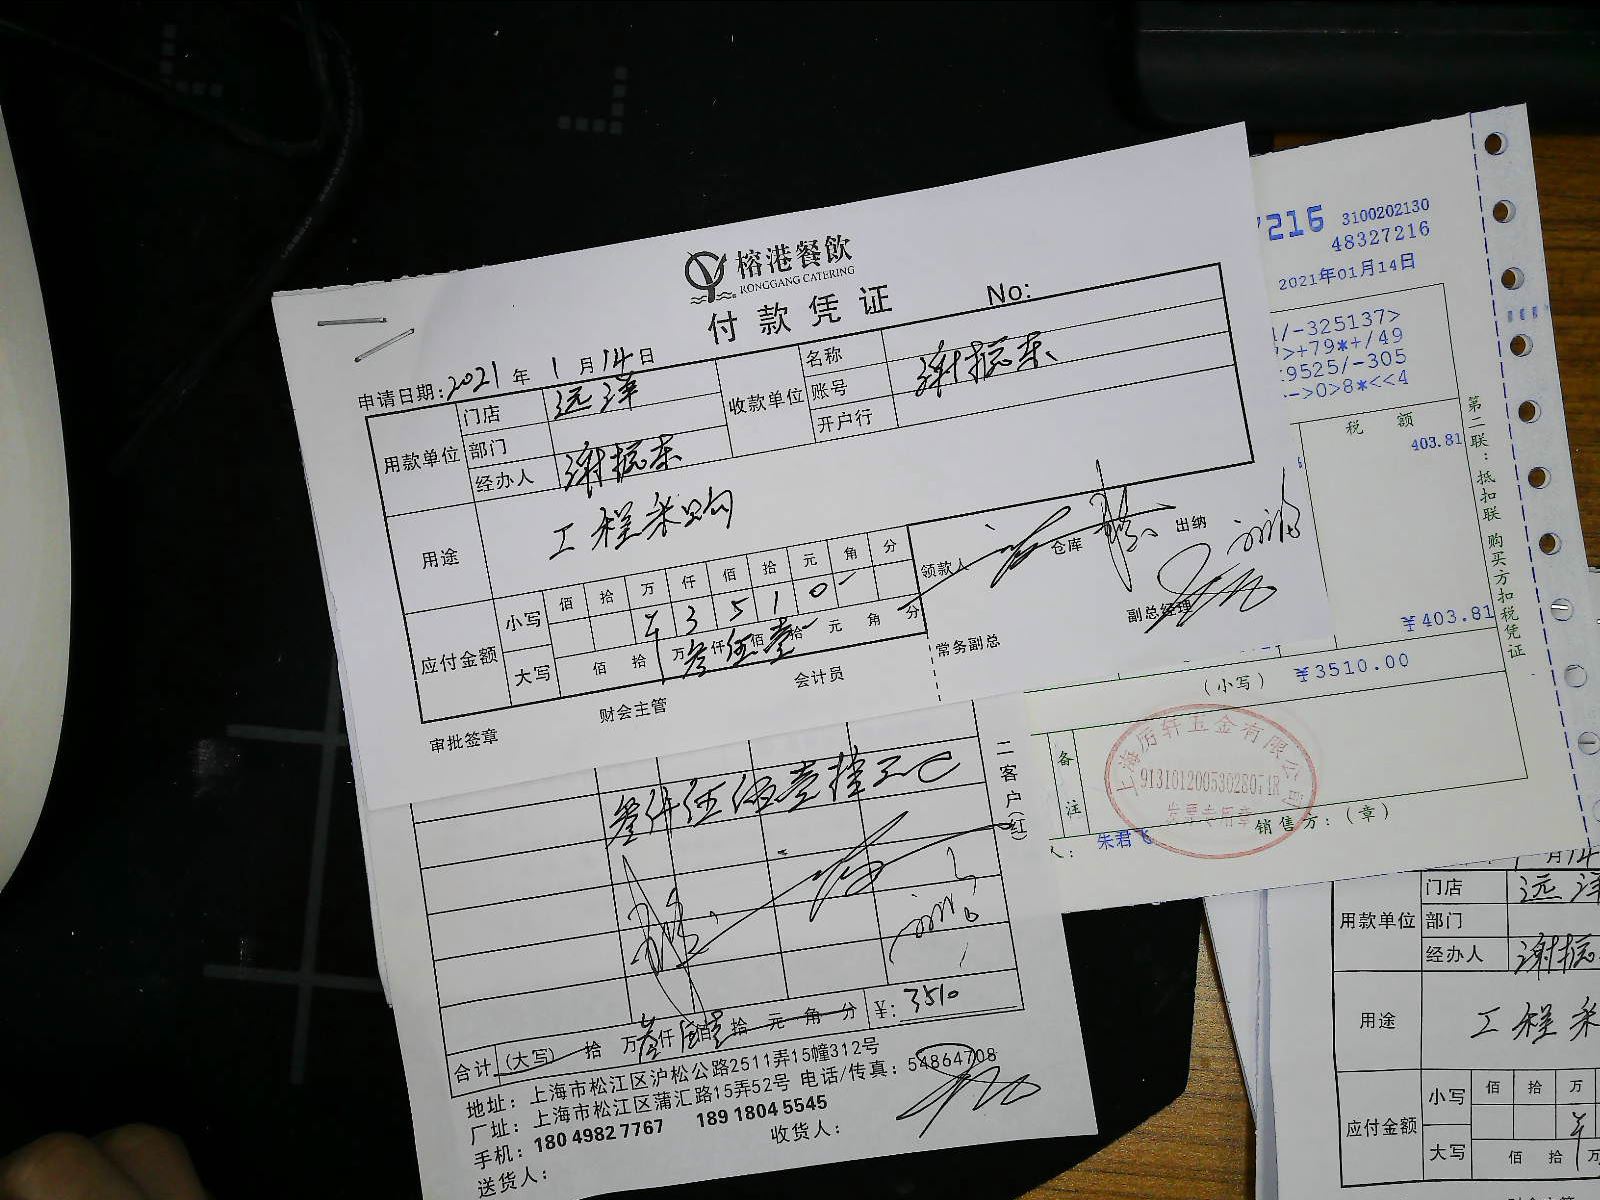 榕港餐飲
RONGGANG CATERING
付款凭证
No:
申请日期:2021年1月14日
用款单位 门店 远洋 收款单位 名称 谢振东
部门 账号
经办人 谢振东 开户行
用途 工程采购
应付金额 小写 佰 拾 万 仟 佰 拾 元 角 分
¥ 3 5 1 0 -
大写 佰 拾 万 叁 仟 伍 佰 壹 拾 元 角 分
领款人 仓库 出纳
副总经理
常务副总
审批签章 财会主管 会计员
7216 3100202130
48327216
2021年01月14日
/-325137>
>+79*+/49
9525/-305
->0>8*<<4
税 额
403.81
¥403.81
(小写) ¥3510.00
第二联:抵扣联 购买方扣税凭证
备注
9131012005302807
发票专用章
人: 朱君飞 销售方:(章)
二客户(红)
合计 (大写) 拾 万 叁 仟 伍 佰 壹 拾 元 角 分 ¥: 3510
地址:上海市松江区沪松公路2511弄15幢312号
厂址:上海市松江区蒲汇路15弄52号 电话/传真:54864708
手机:180 4982 7767 189 1804 5545
送货人: 收货人:
1月14
用款单位 门店 远洋
部门
经办人 谢振
用途 工程采
应付金额 小写 佰 拾 万
¥
大写 佰 拾 万